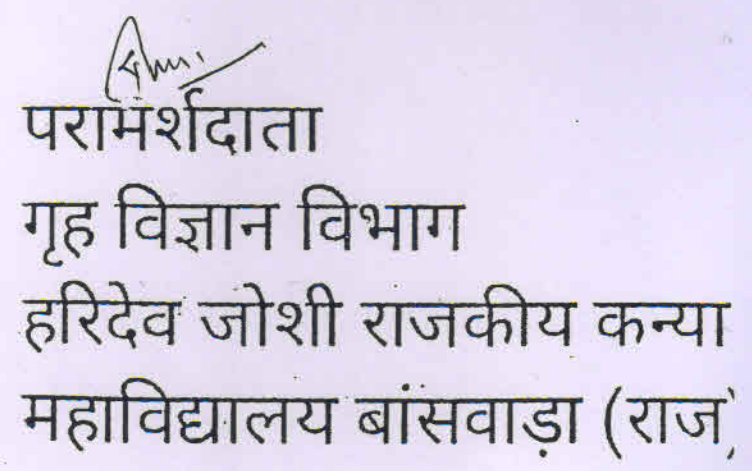 परामर्शदाता
गृह विज्ञान विभाग
हरिदेव जोशी राजकीय कन्या
महाविद्यालय बांसवाड़ा (राज)